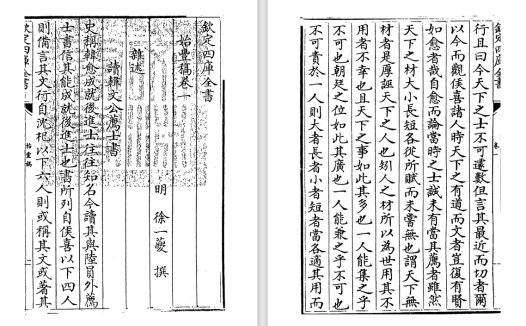 欽定四庫全書
始豐稿卷一
明 徐一夔 撰
雜述
讀韓文公薦士書
史稱韓愈成就後進士往往知名今讀其與陸員外薦
士書信其能成就後進士也書所列自侯喜以下四人
則備言其文行自沈杞以下六人則或稱其文或著其
欽定四庫全書
始豐稿
行且曰今天下之士不可遽數但言其最近而切者爾
以今而觀侯喜諸人時天下之有道而文者豈復有賢
如愈者哉自愈而論當時之士誠未有當其薦者雖然
天下之材大小長短各從所賦而未嘗無也謂天下無
材者是厚誣天下之人也矧人之材所以為世用其不
用者不幸也且天下之事如此其多也一人能集之乎
不可也朝廷之位如此其廣也一人能兼之乎不可也
不可責於一人則大者長者小者短者當各適其用而